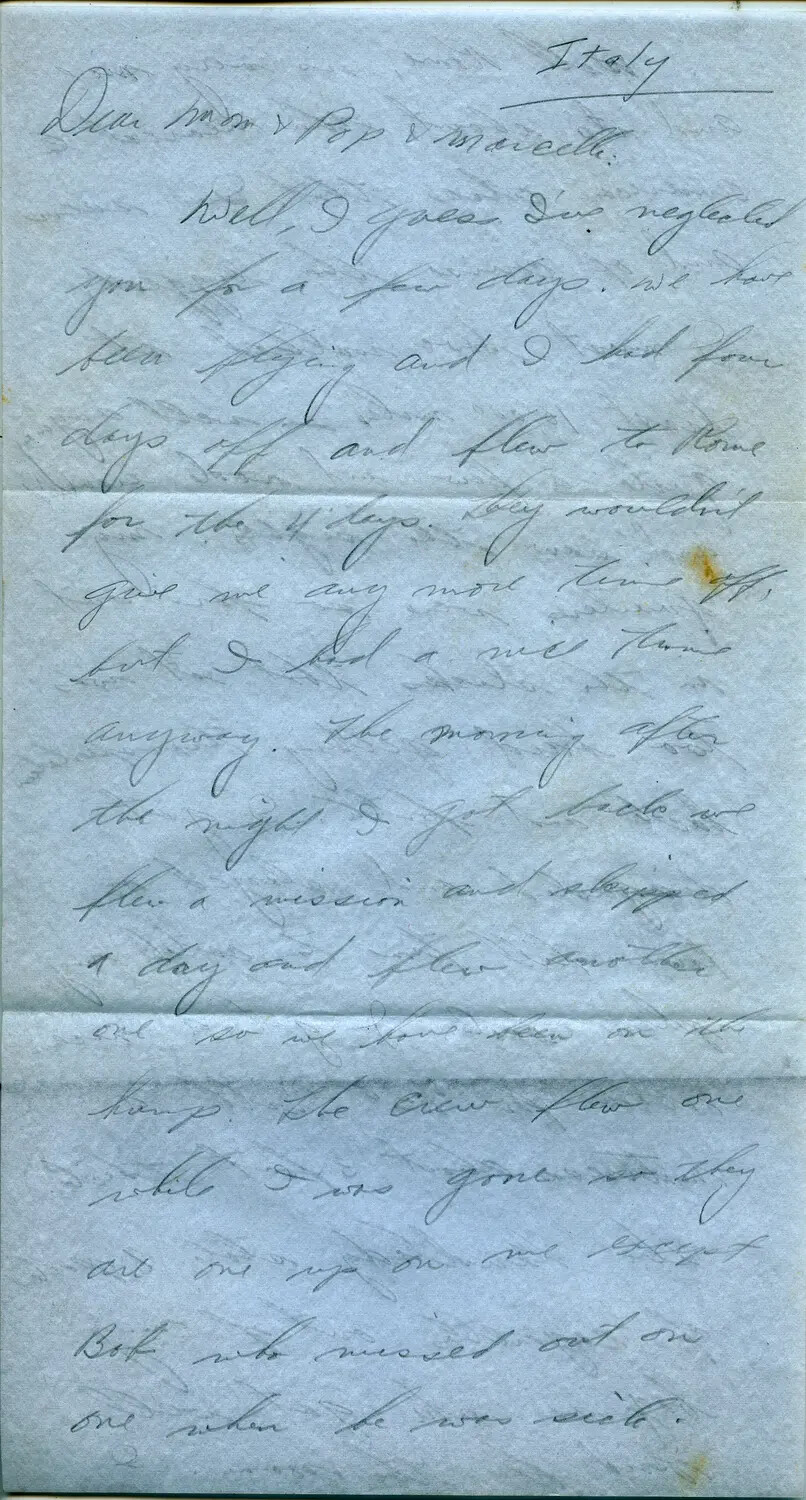 Italy
Dear Mom & Pop & Marcelle:
Well, I guess I've neglected
you for a few days. We have
been flying and I had four
days off and flew to Rome
for the 4 days. They wouldn't
give me any more time off,
but I had a nice time
anyway. The morning after
the night I got back we
flew a mission and skipped
a day and flew another
one so we have been on the
hump. The crew flew one
while I was gone so they
are one up on me except
Bob who missed out on
one when he was sick.